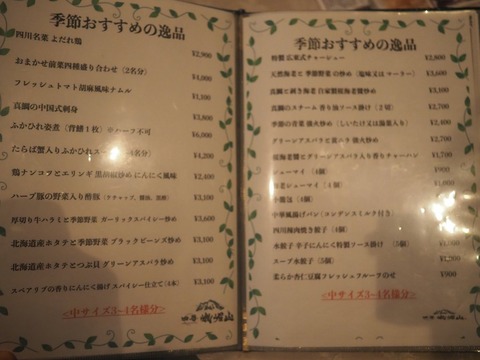 季節おすすめの逸品
四川名菜 よだれ鶏 ¥2,900
おまかせ前菜四種盛り合わせ (2名分)
フレッシュトマト胡麻風味ナムル
真鯛の中国式刺身
ふかひれ姿煮 (背鰭1枚) ※ハーフ不可 ¥6,000
たらば蟹入りふかひれスープ ¥4,200
鶏ナンコツとエリンギ 黒胡椒炒め にんにく風味 ¥2,400
ハーブ豚の野菜入り酢豚 ¥3,100
厚切り牛ハラミと季節野菜 ガーリックスパイシー炒め ¥3,600
北海道産ホタテと季節野菜 ブラックビーンズ炒め ¥3,100
北海道産ホタテとつぶ貝 グリーンアスパラ炒め ¥3,100
スペアリブの香りにんにく揚げ スパイシー仕立て (4本) ¥3,100
<中サイズ3~4名様分>
季節おすすめの逸品
特製 広東式チャーシュー ¥2,800
天然海老と季節野菜の炒め (塩味又はマーラー) ¥3,600
真鯛と剥き海老 自家製豉海老醤炒め ¥3,100
真鯛のスチーム 香り油ソース掛け (2切) ¥2,700
季節の青菜 強火炒め (しいたけ又は湯葉入り) ¥2,400
グリーンアスパラと黄ニラ 強火炒め ¥2,700
グリーンアスパラ入り香りチャーハン ¥1,700
シューマイ (4個) ¥900
海老シューマイ (4個) ¥1,000
小籠包 (4個)
中華風揚げパン (コンデンスミルク付き)
四川麻辣焼き餃子 (4個)
水餃子 辛子にんにく特製ソース掛け (5個)
スープ水餃子 (5個)
柔らか杏仁豆腐フレッシュフルーツのせ ¥900
<中サイズ3~4名様分>